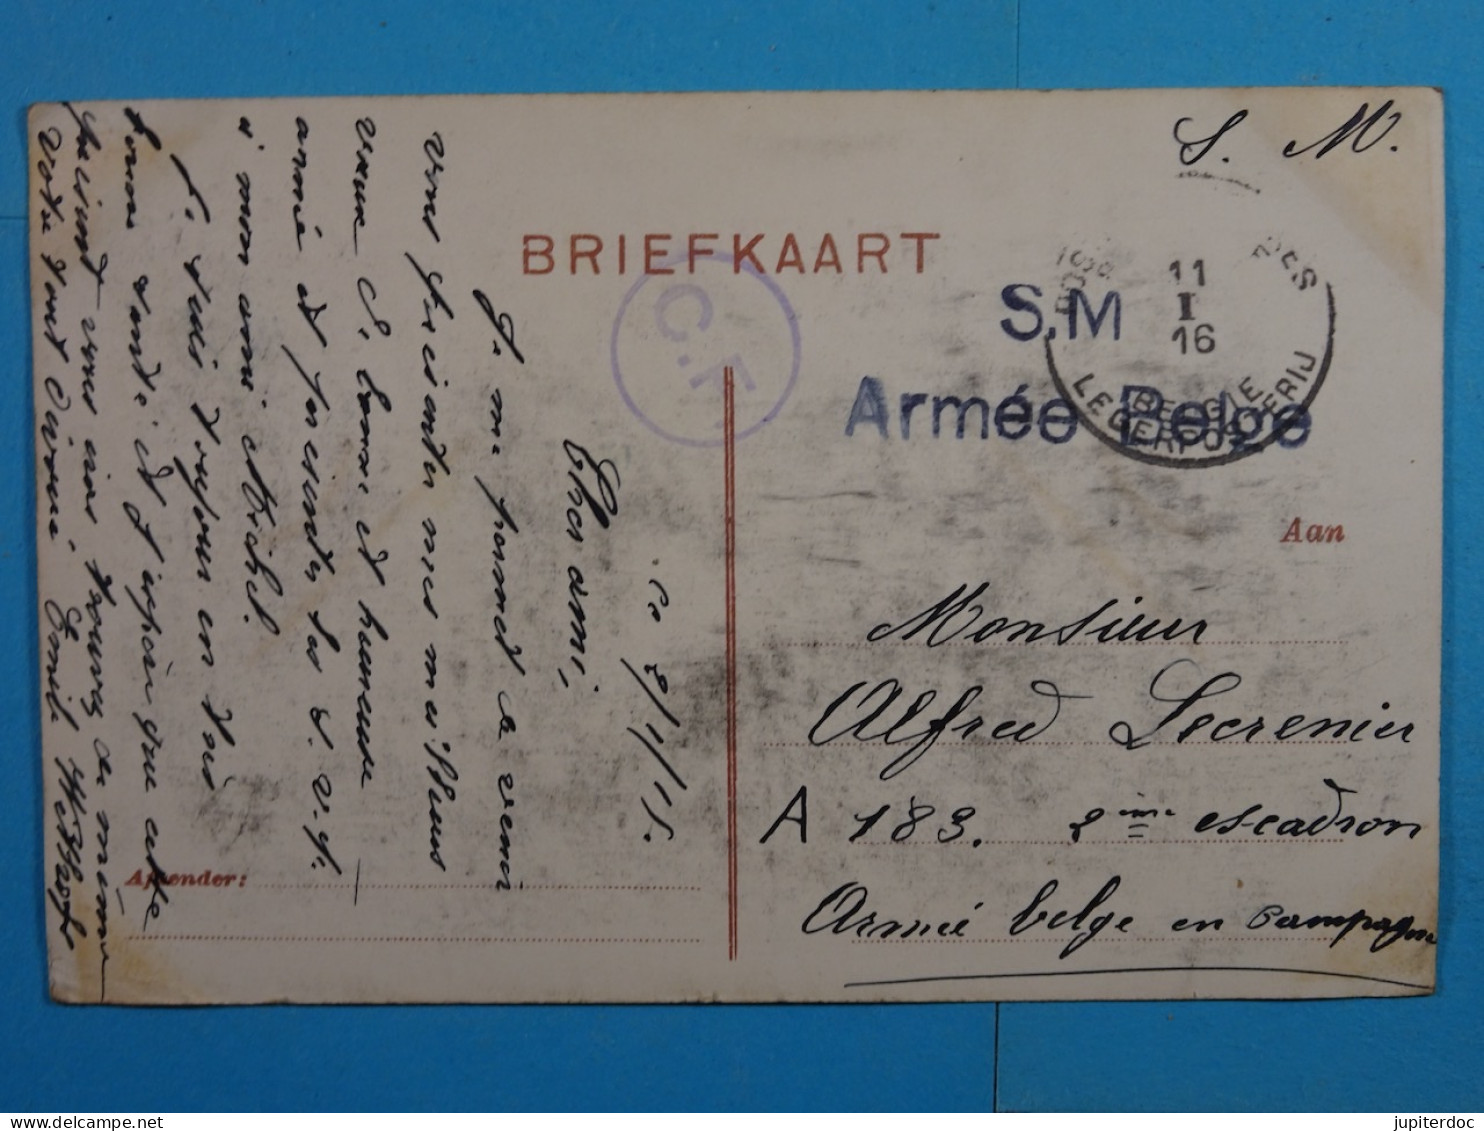 S. M.
BRIEFKAART
C.F
S.M
11
I
16
BELGIE
LEGERPOSTERIJ
Armée Belge
Aan
Monsieur
Alfred Lecrenier
A 183. 2ème escadron
Armée belge en campagne
Afzender:
le 2/1/15.
Cher ami,
Je me permet de venir
vous présenter mes meilleurs
vœux de bonne et heureuse
année et présentes les s.v.p.
à mon ami Michel.
Je suis toujours en
bonne santé et j'espère que cette
vous trouvera de même
Votre tout dévoué, Emile
jupiterdoc